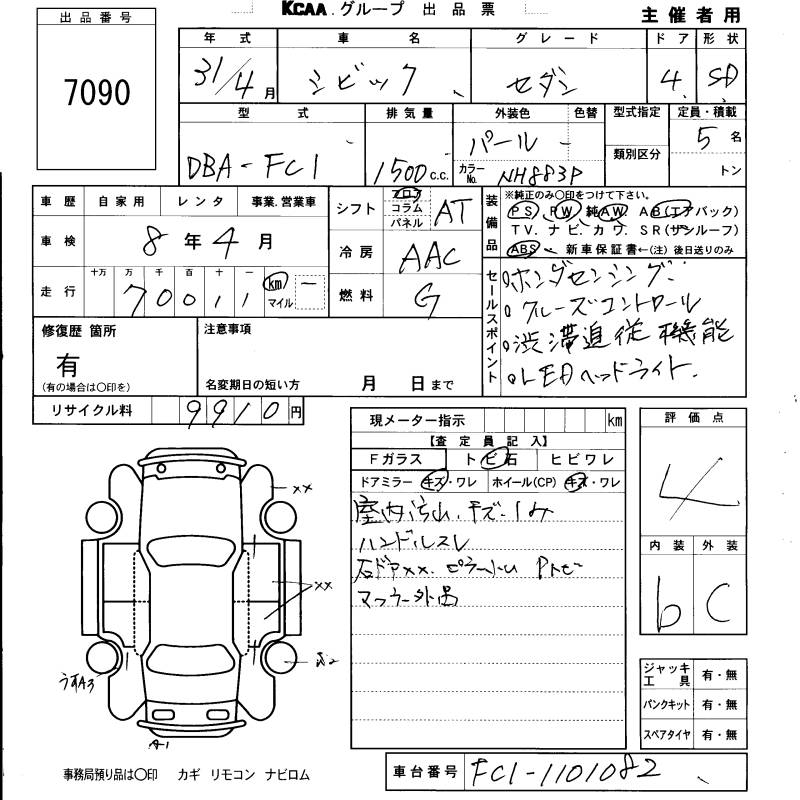 KCAA.グループ 出品票
主催者用
出品番号
7090
年式 車名 グレード ドア 形状
31/4月 シビック セダン 4 SD
型式 排気量 外装色 色替 型式指定 定員・積載
DBA-FC1 1500c.c. パール 類別区分 5名
カラーNo. NH883P トン
車歴 自家用 レンタ 事業.営業車
車検 8年4月
走行 十万 万 千 百 十 一 km マイル
7 0 0 1 1 ー
シフト フロア コラム パネル AT
冷房 AAC
燃料 G
装備品
※純正のみ〇印をつけて下さい。
PS. PW 純AW. AB(エアバック)
TV. ナビ. カワ. SR(サンルーフ)
ABS 新車保証書←(注)後日送りのみ
セールスポイント
ホンダセンシング
クルーズコントロール
渋滞追従機能
LEDヘッドライト.
修復歴 箇所
有
(有の場合は〇印を)
注意事項
名変期日の短い方 月 日まで
リサイクル料 9910円
現メーター指示 km
【査定員記入】
Fガラス トビ石 ヒビワレ
ドアミラー キズ・ワレ ホイール(CP) キズ・ワレ
室内汚れ.キズ.
ハンドルスレ
右ドアxx. ピラー Pトビ
マフラー外品
評価点
4
内装 外装
b C
xx
xx
うすA3
A1
ジャッキ工具 有・無
パンクキット 有・無
スペアタイヤ 有・無
事務局預り品は〇印 カギ リモコン ナビロム
車台番号 FC1-1101082